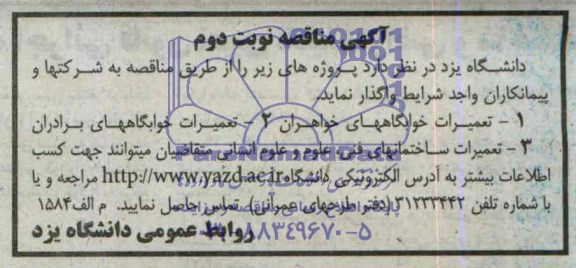 آگهی مناقصه نوبت دوم
دانشگاه یزد در نظر دارد پروژه های زیر را از طریق مناقصه به شرکتها و
پیمانکاران واجد شرایط واگذار نماید.
۱ - تعمیرات خوابگاههای خواهران ۲ - تعمیرات خوابگاههای برادران
۳ - تعمیرات ساختمانهای فنی، علوم و علوم انسانی متقاضیان میتوانند جهت کسب
اطلاعات بیشتر به آدرس الکترونیکی دانشگاه http://www.yazd.ac.ir مراجعه و یا
با شماره تلفن ۳۱۲۳۳۴۴۲ (دفتر طرحهای عمرانی) تماس حاصل نمایید. م الف ۱۵۸۴
روابط عمومی دانشگاه یزد
ParsNamadData
۸۸۳۴۹۶۷۰-۵